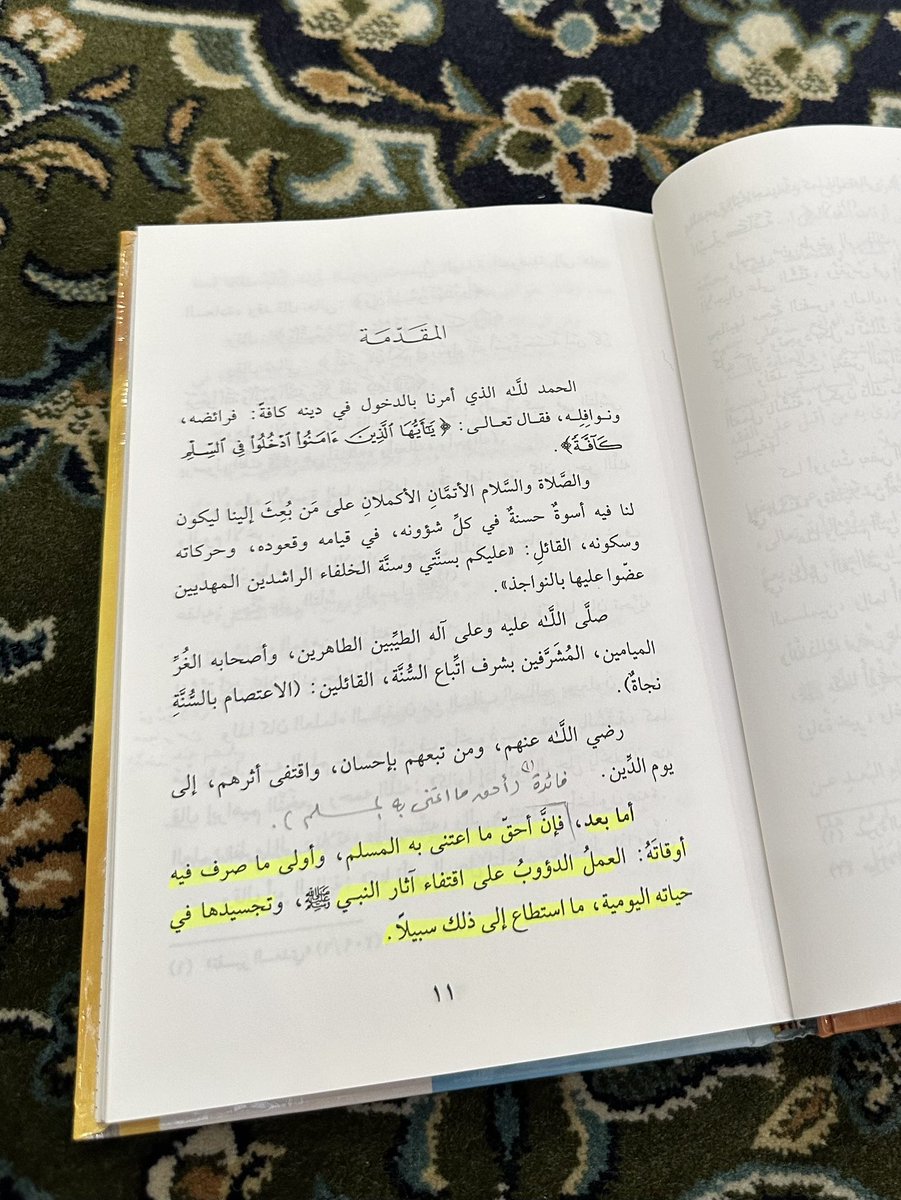 المقَدّمَة
الحمد للَّـه الذي أمرنا بالدخول في دينه كافةً: فرائضه،
ونـوافلِـه، فقـال تعـالـى: ﴿ يَٰٓأَيُّهَا ٱلَّذِينَ ءَامَنُوا۟ ٱدْخُلُوا۟ فِى ٱلسِّلْمِ
كَآفَّةً﴾.
والصَّلاة والسَّلام الأتمَّانِ الأكملانِ على مَن بُعِثَ إلينا ليكون
لنا فيه أسوةٌ حسنةٌ في كلِّ شؤونه، في قيامه وقعوده، وحركاته
وسكونه، القائلِ: «عليكم بسنَّتي وسنَّة الخلفاء الراشدين المهديين
عضّوا عليها بالنواجذ».
صلَّى اللَّـه عليه وعلى آله الطيِّبين الطاهرين، وأصحابه الغُرِّ
الميامين، المُشَرَّفين بشرف اتِّباع السُّنَّة، القائلين: (الاعتصام بالسُّنَّةِ
نجاةٌ).
رضي اللَّـه عنهم، ومن تبعهم بإحسان، واقتفى أثرهم، إلى
يوم الدِّين.
فائدة (١) (أحق ما اعتنى به المسلم).
أما بعد، فإنَّ أحقّ ما اعتنى به المسلم، وأولى ما صرف فيه
أوقاتَهُ: العملُ الدؤوبُ على اقتفاء آثار النبـي ﷺ، وتجسيدها في
حياته اليومية، ما استطاع إلى ذلك سبيلاً.
١١